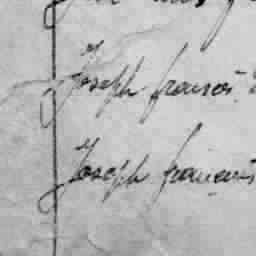 Joseph francois
Joseph francois